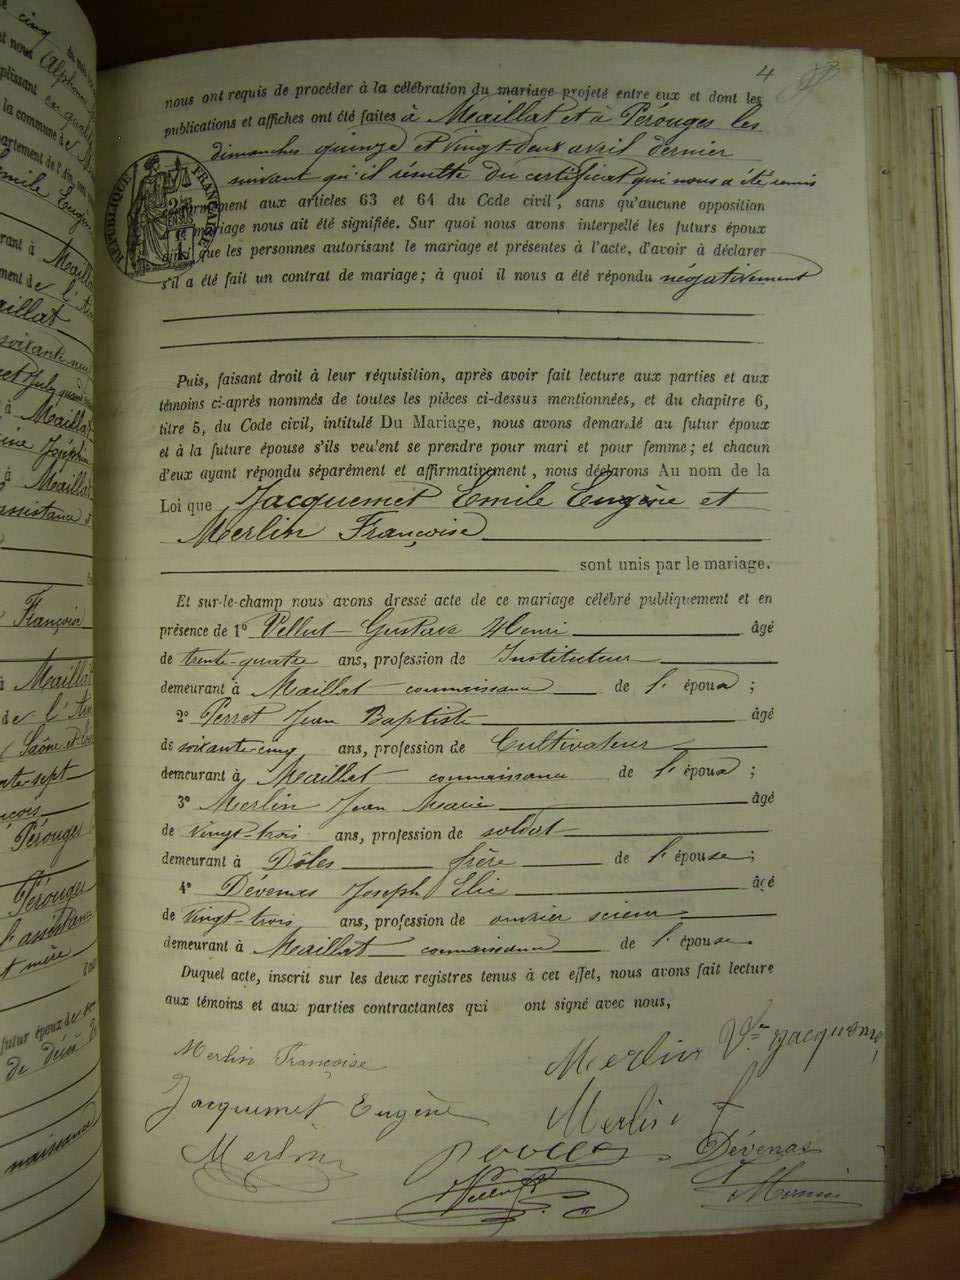 4
nous ont requis de procéder à la célébration du mariage projeté entre eux et dont les
publications et affiches ont été faites à Maillat et à Pérouges les
dimanches quinze et vingt-deux avril dernier
suivant qu'il résulte du certificat qui nous a été remis
conformément aux articles 63 et 64 du Code civil, sans qu'aucune opposition
mariage nous ait été signifiée. Sur quoi nous avons interpellé les futurs époux
ainsi que les personnes autorisant le mariage et présentes à l'acte, d'avoir à déclarer
s'il a été fait un contrat de mariage; à quoi il nous a été répondu négativement
RÉPUBLIQUE FRANÇAISE
Puis, faisant droit à leur réquisition, après avoir fait lecture aux parties et aux
témoins ci-après nommés de toutes les pièces ci-dessus mentionnées, et du chapitre 6,
titre 5, du Code civil, intitulé Du Mariage, nous avons demandé au futur époux
et à la future épouse s'ils veulent se prendre pour mari et pour femme; et chacun
d'eux ayant répondu séparément et affirmativement, nous déclarons Au nom de la
Loi que Jacquemet Emile Eugène et
Merlin Françoise
sont unis par le mariage.
Et sur-le-champ nous avons dressé acte de ce mariage célébré publiquement et en
présence de 1° Vellut Gustave Henri âgé
de trente-quatre ans, profession de Instituteur
demeurant à Maillat connaissance de l'époux;
2° Perret Jean Baptiste âgé
de soixante-cinq ans, profession de Cultivateur
demeurant à Maillat connaissance de l'époux;
3° Merlin Jean Marie âgé
de vingt-trois ans, profession de soldat
demeurant à Dôles frère de l'épouse;
4° Dévenas Joseph Elie âgé
de vingt-trois ans, profession de ouvrier scieur
demeurant à Maillat connaissance de l'épouse.
Duquel acte, inscrit sur les deux registres tenus à cet effet, nous avons fait lecture
aux témoins et aux parties contractantes qui ont signé avec nous,
Merlin Françoise
Merlin Vve Jacquemet
Jacquemet Eugène
Merlin F
Merlin
Dévenas
Vellut